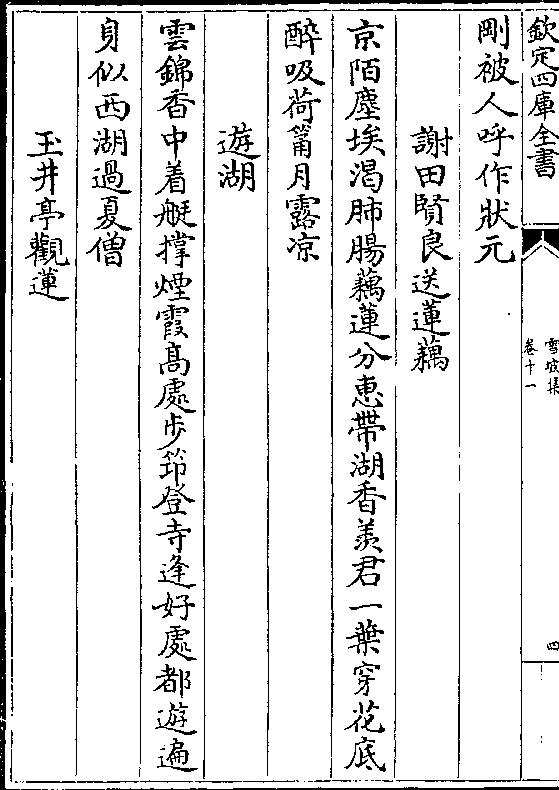 欽定四庫全書
雪坡集
卷十一
四
剛被人呼作狀元
謝田賢良送蓮藕
京陌塵埃渴肺腸藕蓮分惠帶湖香羨君一葉穿花底
醉吸荷筩月露凉
遊湖
雲錦香中着艇撑煙霞髙處步笻登寺逢好處都遊遍
身似西湖過夏僧
玉井亭觀蓮